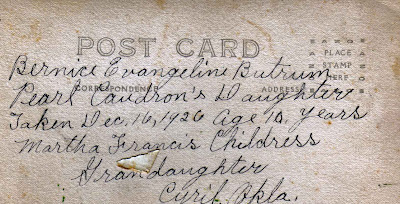 POST CARD
PLACE
STAMP
HERE
Bernice Evangeline Butrum
CORRESPONDENCE
ADDRESS
Pearl Caudron's Daughter
Taken Dec, 16, 1926 Age 10 Years
Martha Francis Childress
Grandaughter
Cyril Okla.